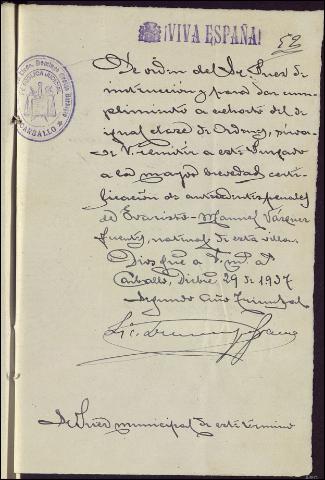 ¡VIVA ESPAÑA!
52
CARBALLO
De orden del Sr. Juez de
instrucción y para dar cum-
plimiento a exhorto del de
igual clase de Ordenes, sírva-
se V. remitir a este Juzgado
a la mayor brevedad certi-
ficación de antecedentes penales
de Evaristo-Manuel Vázquez
Fuentes, natural de esta villa.
Dios gue a V. ms. as.
Carballo, Dicbre 29 de 1937
Segundo Año Triunfal
Sr. Juez municipal de este término